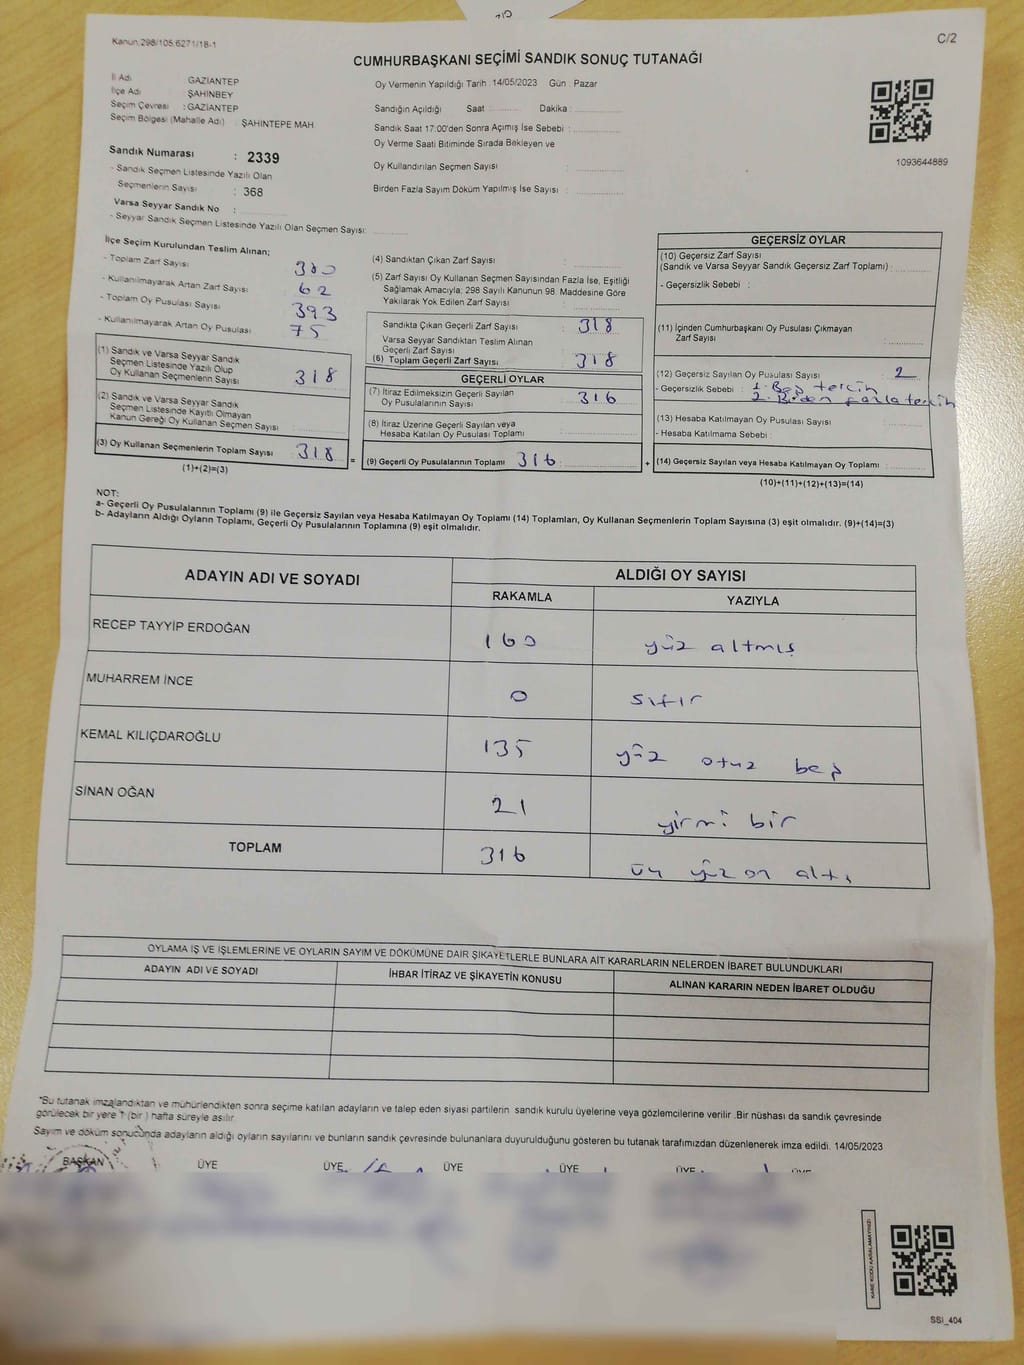 Kanun:298/105.6271/18-1
C/2
CUMHURBAŞKANI SEÇİMİ SANDIK SONUÇ TUTANAĞI
İl Adı GAZİANTEP
İlçe Adı ŞAHİNBEY
Seçim Çevresi : GAZİANTEP
Seçim Bölgesi (Mahalle Adı) : ŞAHİNTEPE MAH
Sandık Numarası : 2339
- Sandık Seçmen Listesinde Yazılı Olan
Seçmenlerin Sayısı : 368
Varsa Seyyar Sandık No :
- Seyyar Sandık Seçmen Listesinde Yazılı Olan Seçmen Sayısı:
Oy Vermenin Yapıldığı Tarih : 14/05/2023 Gün : Pazar
Sandığın Açıldığı Saat : Dakika :
Sandık Saat 17:00'den Sonra Açımış İse Sebebi :
Oy Verme Saati Bitiminde Sırada Bekleyen ve
Oy Kullandırılan Seçmen Sayısı :
Birden Fazla Sayım Döküm Yapılmış İse Sayısı :
1093644889
İlçe Seçim Kurulundan Teslim Alınan;
- Toplam Zarf Sayısı 380
- Kullanılmayarak Artan Zarf Sayısı 62
- Toplam Oy Pusulası Sayısı 393
- Kullanılmayarak Artan Oy Pusulası 75
(1) Sandık ve Varsa Seyyar Sandık
Seçmen Listesinde Yazılı Olup
Oy Kullanan Seçmenlerin Sayısı 318
(2) Sandık ve Varsa Seyyar Sandık
Seçmen Listesinde Kayıtlı Olmayan
Kanun Gereği Oy Kullanan Seçmen Sayısı :
(3) Oy Kullanan Seçmenlerin Toplam Sayısı 318 =
(1)+(2)=(3)
(4) Sandıktan Çıkan Zarf Sayısı :
(5) Zarf Sayısı Oy Kullanan Seçmen Sayısından Fazla İse, Eşitliği
Sağlamak Amacıyla, 298 Sayılı Kanunun 98. Maddesine Göre
Yakılarak Yok Edilen Zarf Sayısı :
Sandıkta Çıkan Geçerli Zarf Sayısı : 318
Varsa Seyyar Sandıktan Teslim Alınan
Geçerli Zarf Sayısı
(6) Toplam Geçerli Zarf Sayısı : 318
GEÇERLİ OYLAR
(7) İtiraz Edilmeksizin Geçerli Sayılan
Oy Pusulalarının Sayısı : 316
(8) İtiraz Üzerine Geçerli Sayılan veya
Hesaba Katılan Oy Pusulası Toplamı :
(9) Geçerli Oy Pusulalarının Toplamı 316 +
GEÇERSİZ OYLAR
(10) Geçersiz Zarf Sayısı
(Sandık ve Varsa Seyyar Sandık Geçersiz Zarf Toplamı) :
- Geçersizlik Sebebi :
(11) İçinden Cumhurbaşkanı Oy Pusulası Çıkmayan
Zarf Sayısı :
(12) Geçersiz Sayılan Oy Pusulası Sayısı : 2
- Geçersizlik Sebebi : 1. Boş tercih
2. Birden fazla tercih
(13) Hesaba Katılmayan Oy Pusulası Sayısı :
- Hesaba Katılmama Sebebi :
(14) Geçersiz Sayılan veya Hesaba Katılmayan Oy Toplamı :
(10)+(11)+(12)+(13)=(14)
NOT:
a- Geçerli Oy Pusulalarının Toplamı (9) ile Geçersiz Sayılan veya Hesaba Katılmayan Oy Toplamı (14) Toplamları, Oy Kullanan Seçmenlerin Toplam Sayısına (3) eşit olmalıdır. (9)+(14)=(3)
b- Adayların Aldığı Oyların Toplamı, Geçerli Oy Pusulalarının Toplamına (9) eşit olmalıdır.
ADAYIN ADI VE SOYADI ALDIĞI OY SAYISI
RAKAMLA YAZIYLA
RECEP TAYYİP ERDOĞAN 160 yüz altmış
MUHARREM İNCE 0 sıfır
KEMAL KILIÇDAROĞLU 135 yüz otuz beş
SİNAN OĞAN 21 yirmi bir
TOPLAM 316 üç yüz on altı
OYLAMA İŞ VE İŞLEMLERİNE VE OYLARIN SAYIM VE DÖKÜMÜNE DAİR ŞİKAYETLERLE BUNLARA AİT KARARLARIN NELERDEN İBARET BULUNDUKLARI
ADAYIN ADI VE SOYADI İHBAR İTİRAZ VE ŞİKAYETİN KONUSU ALINAN KARARIN NEDEN İBARET OLDUĞU
"Bu tutanak imzalandıktan ve mühürlendikten sonra seçime katılan adayların ve talep eden siyasi partilerin sandık kurulu üyelerine veya gözlemcilerine verilir. Bir nüshası da sandık çevresinde
görülecek bir yere 1 (bir ) hafta süreyle asılır
Sayım ve döküm sonucunda adayların aldığı oyların sayılarını ve bunların sandık çevresinde bulunanlara duyurulduğunu gösteren bu tutanak tarafımızdan düzenlenerek imza edildi. 14/05/2023
BAŞKAN ÜYE ÜYE ÜYE ÜYE ÜYE ÜYE
KARE KODU KARALAMAYINIZ!
SSİ_404